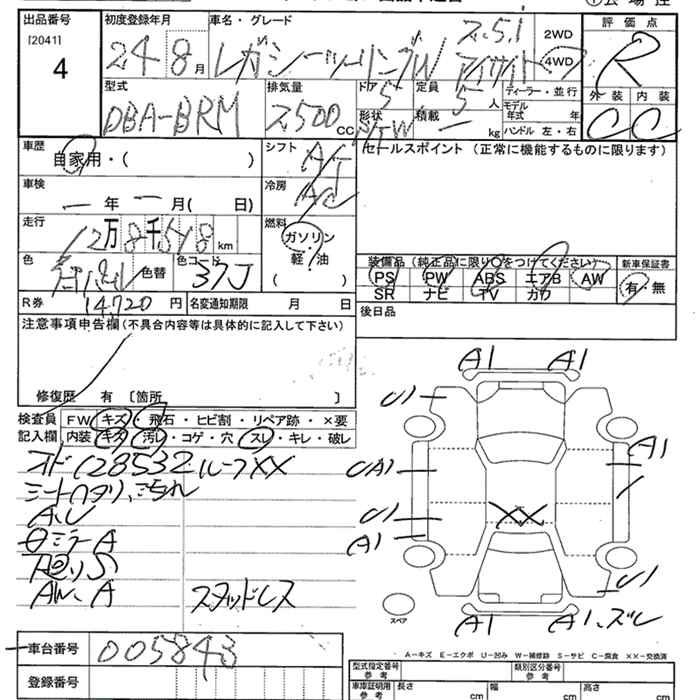 出品番号
[2041]
4
初度登録年月
24 8月
車名・グレード
レガシーツーリングW 2.5i
アイサイト
2WD
4WD
評価点
R
外装 内装
C C
型式
DBA-BRM
排気量
2500 cc
ドア
5
形状
S/W
定員
5人
積載
ー kg
ディーラー・並行
モデル年式 年
ハンドル 左・右
車歴
自家用・( )
シフト
AT
冷房
AC
セールスポイント (正常に機能するものに限ります)
車検
ー年 ー月( 日)
走行
12万8千518km
燃料
ガソリン
軽・油
( )
色
色替
色コード
37J
装備品(純正品に限り○をつけてください)
新車保証書
PS PW ABS エアB AW
有・無
SR ナビ TV カワ
R券
14,720円
名変通知期限 月 日
後日品
注意事項申告欄(不具合内容等は具体的に記入して下さい)
修復歴 有 〔箇所 〕
検査員
記入欄
FW キズ・飛石・ヒビ割・リペア跡・×要
内装 キズ・汚れ・コゲ・穴・スレ・キレ・破レ
オド128532 ルーフXX
シートヘタリ、汚れ
A、U
ミラーA
AW、A
スタッドレス
A1 A1
U1
A1
UA1
U1
A1
XX
U1
A1 A1、ズレ
スペア
A-キズ E-エクボ U-凹み W-補修跡 S-サビ C-腐食 XX-交換済
車台番号
005843
登録番号
型式指定番号
参考
類別区分番号
参考
車庫証明用
参考
長さ cm
幅 cm
高さ cm